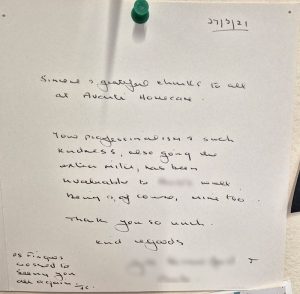 27/9/21
Sincere & grateful thanks to all
at Avanti Homecare.
Your professionalism & such
kindness, also going the
extra mile, has been
invaluable to well
being &, of course, mine too.
Thank you so much
kind regards
PS Fingers
crossed to
seeing you
all again